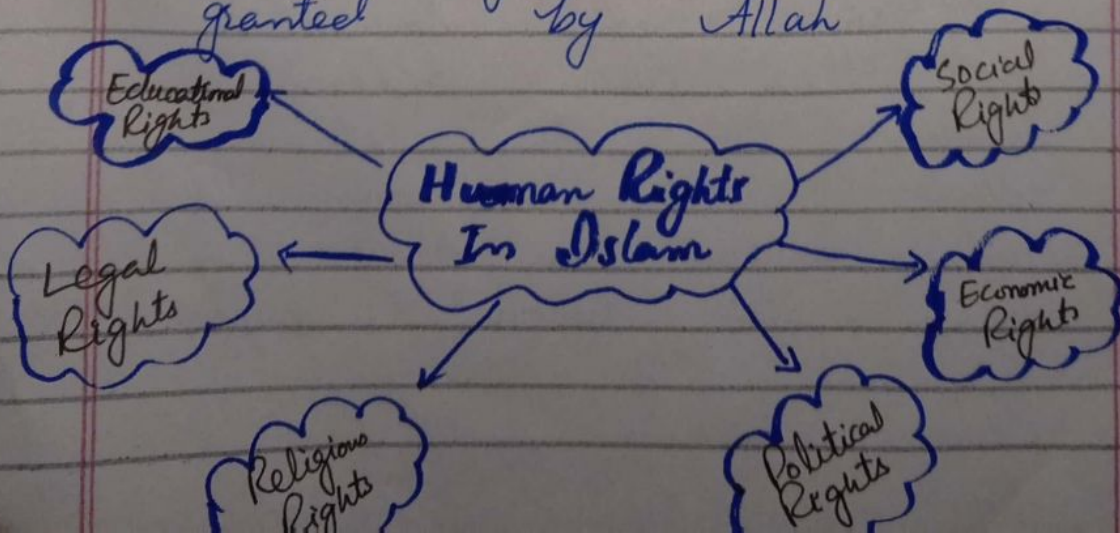 granted by Allah
Educational
Rights
Social
Rights
Human Rights
In Islam
Legal
Rights
Economic
Rights
Religious
Rights
Political
Rights